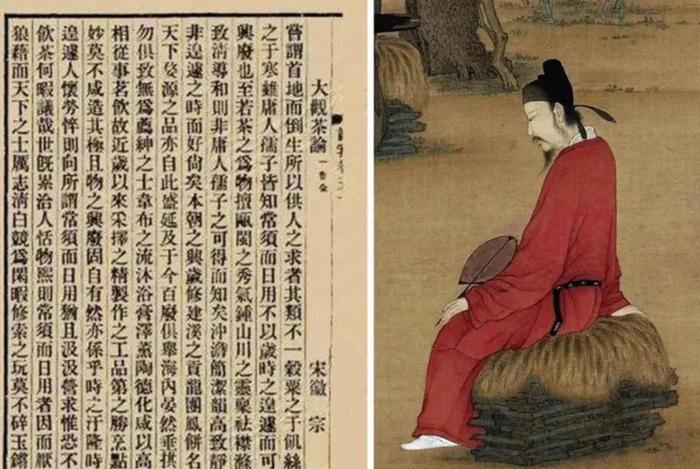 大觀茶論一卷全 宋徽宗
嘗謂首地而倒生所以供人之求者其類不一穀粟之于飢絲
之于寒雖庸人孺子皆知常須而日用不以歲時之遑遽而可
興廢也至若茶之爲物擅甌閩之秀氣鍾山川之靈稟祛襟滌
致清導和則非庸人孺子之可得而知矣沖澹簡潔韻高致靜
非遑遽之時而好尚矣本朝之興歲修建溪之貢龍團鳳餅名
天下婺源之品亦自此盛延及于今百廢俱舉海內晏然垂拱
勿俱致無爲薦紳之士韋布之流沐浴膏澤薰陶德化咸以高
相從事茗飲故近歲以來采擇之精製作之工品第之勝烹點
妙莫不咸造其極且物之興廢固自有然亦係乎時之汙隆時
遑遽人懷勞悴則向所謂常須而日用猶且汲汲營求惟恐不
飲茶何暇議哉世既累治人恬物熙則常須而日用者因而厭
狼藉而天下之士厲志清白競爲閑暇修索之玩莫不碎玉鏘